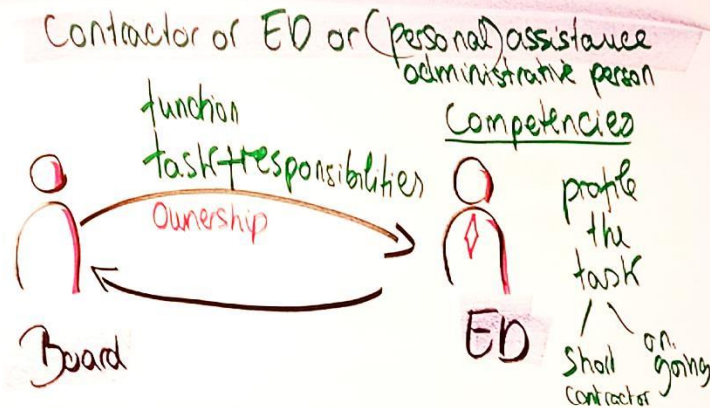 Contractor or ED or (personal) assistance
administrative person
function
task + responsibilities
Ownership
Board
Competencies
profile
the
task
ED
Short
contractor
on
going